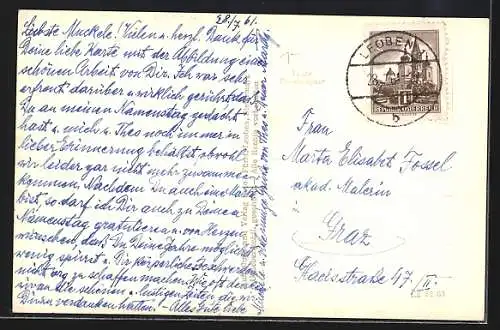 28./7. 61.
Liebste Muckele! Vielen u. herzl. Dank für
Deine liebe Karte mit der Abbildung einer
schönen Arbeit von Dir. Ich war sehr
erfreut darüber u. wirklich gerührt, dass
Du an meinen Namenstag gedacht
hast u. mich u. Theo noch immer in
lieber Erinnerung behältst, obwohl
wir leider gar nicht mehr zusammen-
kommen. Nachdem Du auch eine Marta
bist, so darf ich Dir auch zu Deinem
Namenstag gratulieren u. von Herzen
wünschen, daß Du Deine Jahre möglichst
wenig spürst u. Dir körperliche Beschwerden
nicht arg zu schaffen machen. Wie oft denken
wir an die schönen u. lustigen Zeiten, die wir
Dir zu verdanken hatten. – Alles Gute, liebe
LEOBEN
b
REPUBLIK ÖSTERREICH
Frau
Marta Elisabet Fossel
akad. Malerin
Graz
Körösistraße 47./II.